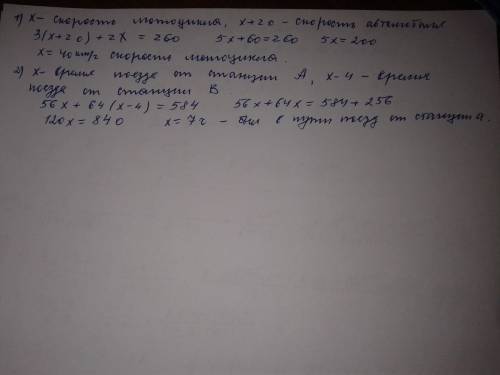 1) х - скорость мотоцикла, х+20 - скорость автомобиля
3(х+20)+2х = 260 5х+60=260 5х=200
х=40 км/ч скорость мотоцикла.
2) х - время поезда от станции А, х-4 - время
поезда от станции В.
56х + 64(х-4) = 584 56х+64х = 584+256
120х = 840 х=7ч - был в пути поезд от станции А.